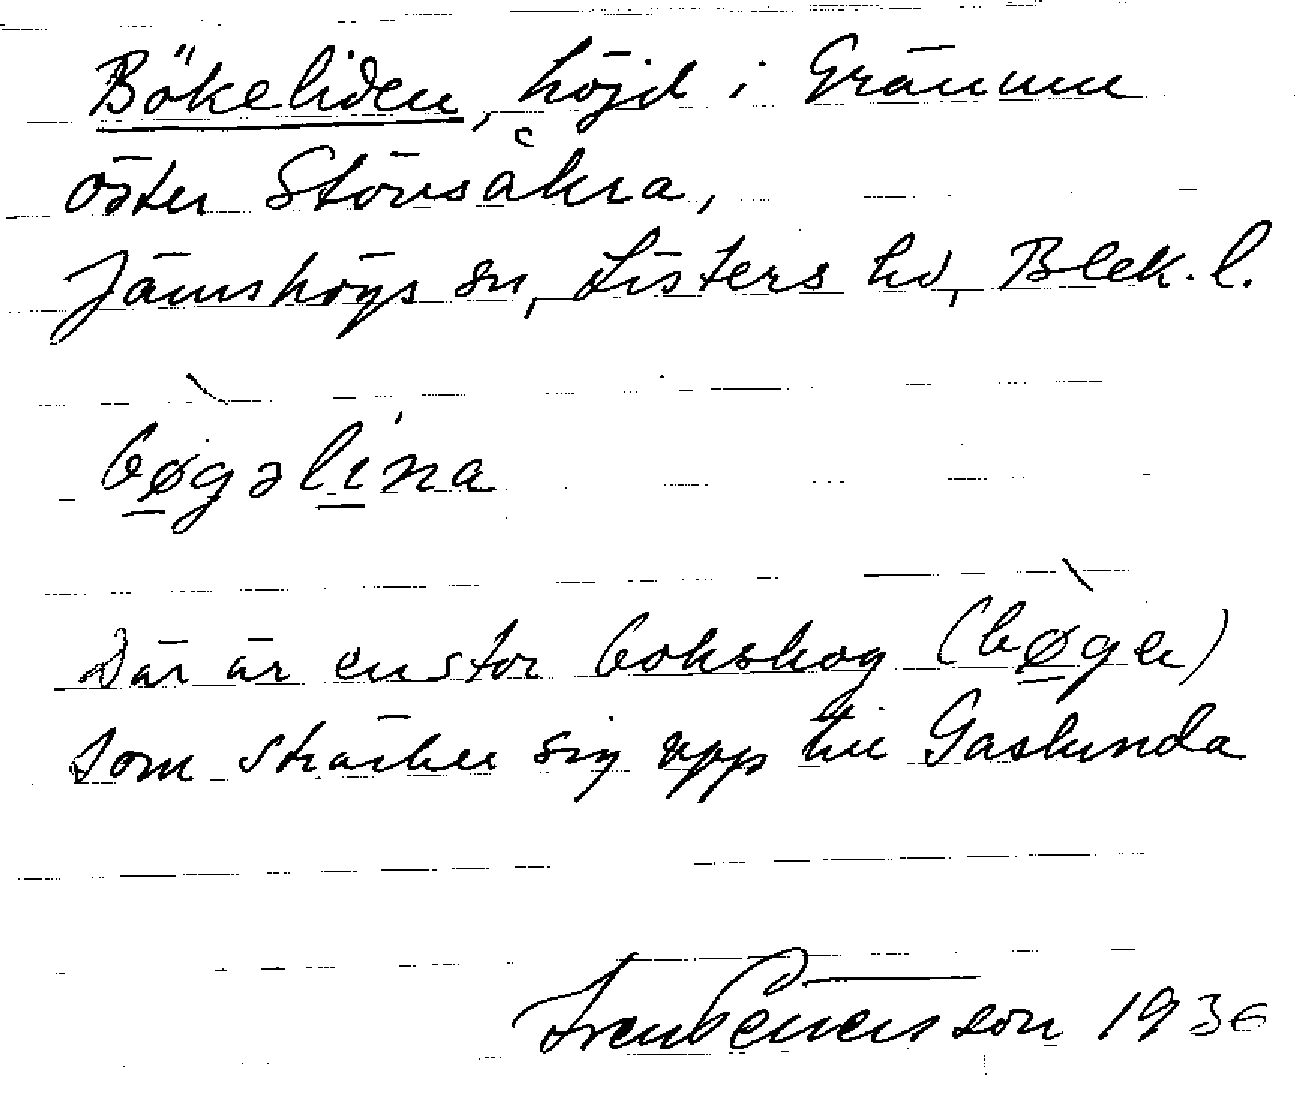 Bökeliden, höjd i Gränum
öster Stövsåkra,
Jämshögs sn, Listers hd, Blek. l.
bøgəlina
Där är en stor bokskog (bøgen)
som sträcker sig upp till Gaslunda
Benson 1936